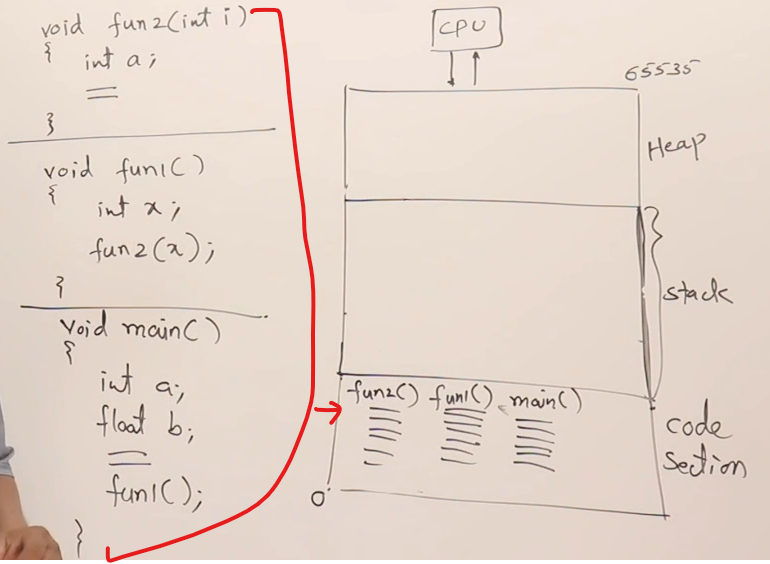 void fun2(int i)
{
int a;
}
void fun1()
{
int x;
fun2(x);
}
void main()
{
int a;
float b;
fun1();
}
CPU
65535
Heap
stack
fun2() fun1() main()
code
section
0